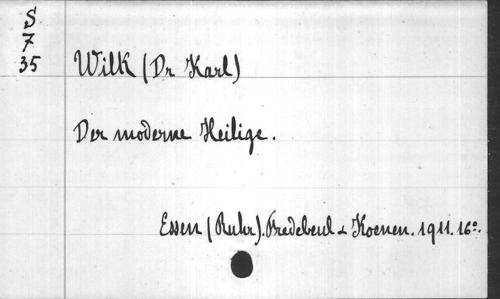 S
7
35
Wilk (Dr Karl)
Der moderne Heilige.
Essen (Ruhr). Fredebeul & Koenen. 1911. 16º.